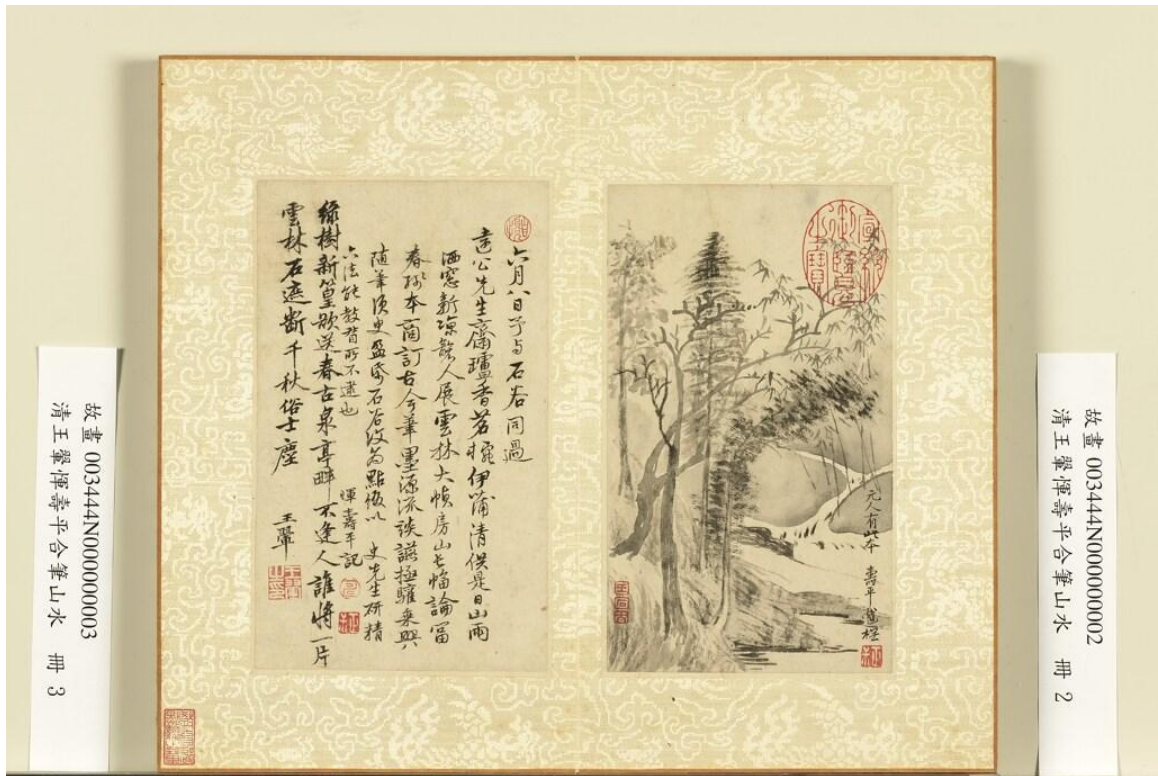 故畫 003444N000000002
清王翬惲壽平合筆山水 冊 2
宣統御覽之寶
元人有此本
壽平戲墨
六月八日予与石谷同過
遠公先生齋壚香茗椀伊蒲清供是日山雨
洒窓新涼
人展雲林大幀房山長幅論當
春
本商訂古今筆墨源流談讌極驩乘興
随筆須史盈
石谷
為點綴以
史先生研精
六法能教晉所不逮也
惲壽平記
綠樹新篁欲送春古泉亭畔不逢人誰將一片
雲林石遮斷千秋俗士塵
王翬
故畫 003444N000000003
清王翬惲壽平合筆山水 冊 3